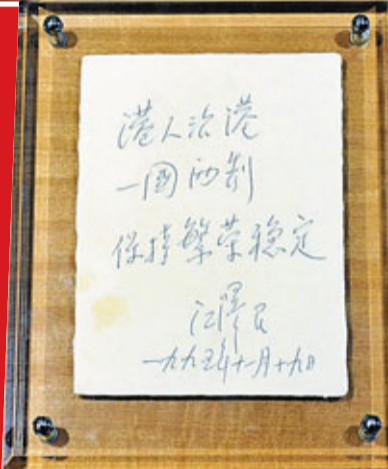 港人治港
一國两制
保持繁荣稳定
江澤民
一九九五年十一月十九日